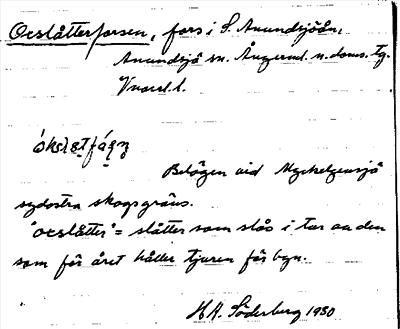 Ocslåtterforsen, fors i S. Anundsjöån,
Anundsjö sn. Ångerml. n. doms. tg.
Vnorrl. l.
Belägen vid Myckelgensjö
sydostra skogsgräns.
"ocslåtter" = slåtter som slås i tur av den
som för året håller tjuren för byn.
H.A. Söderberg 1930